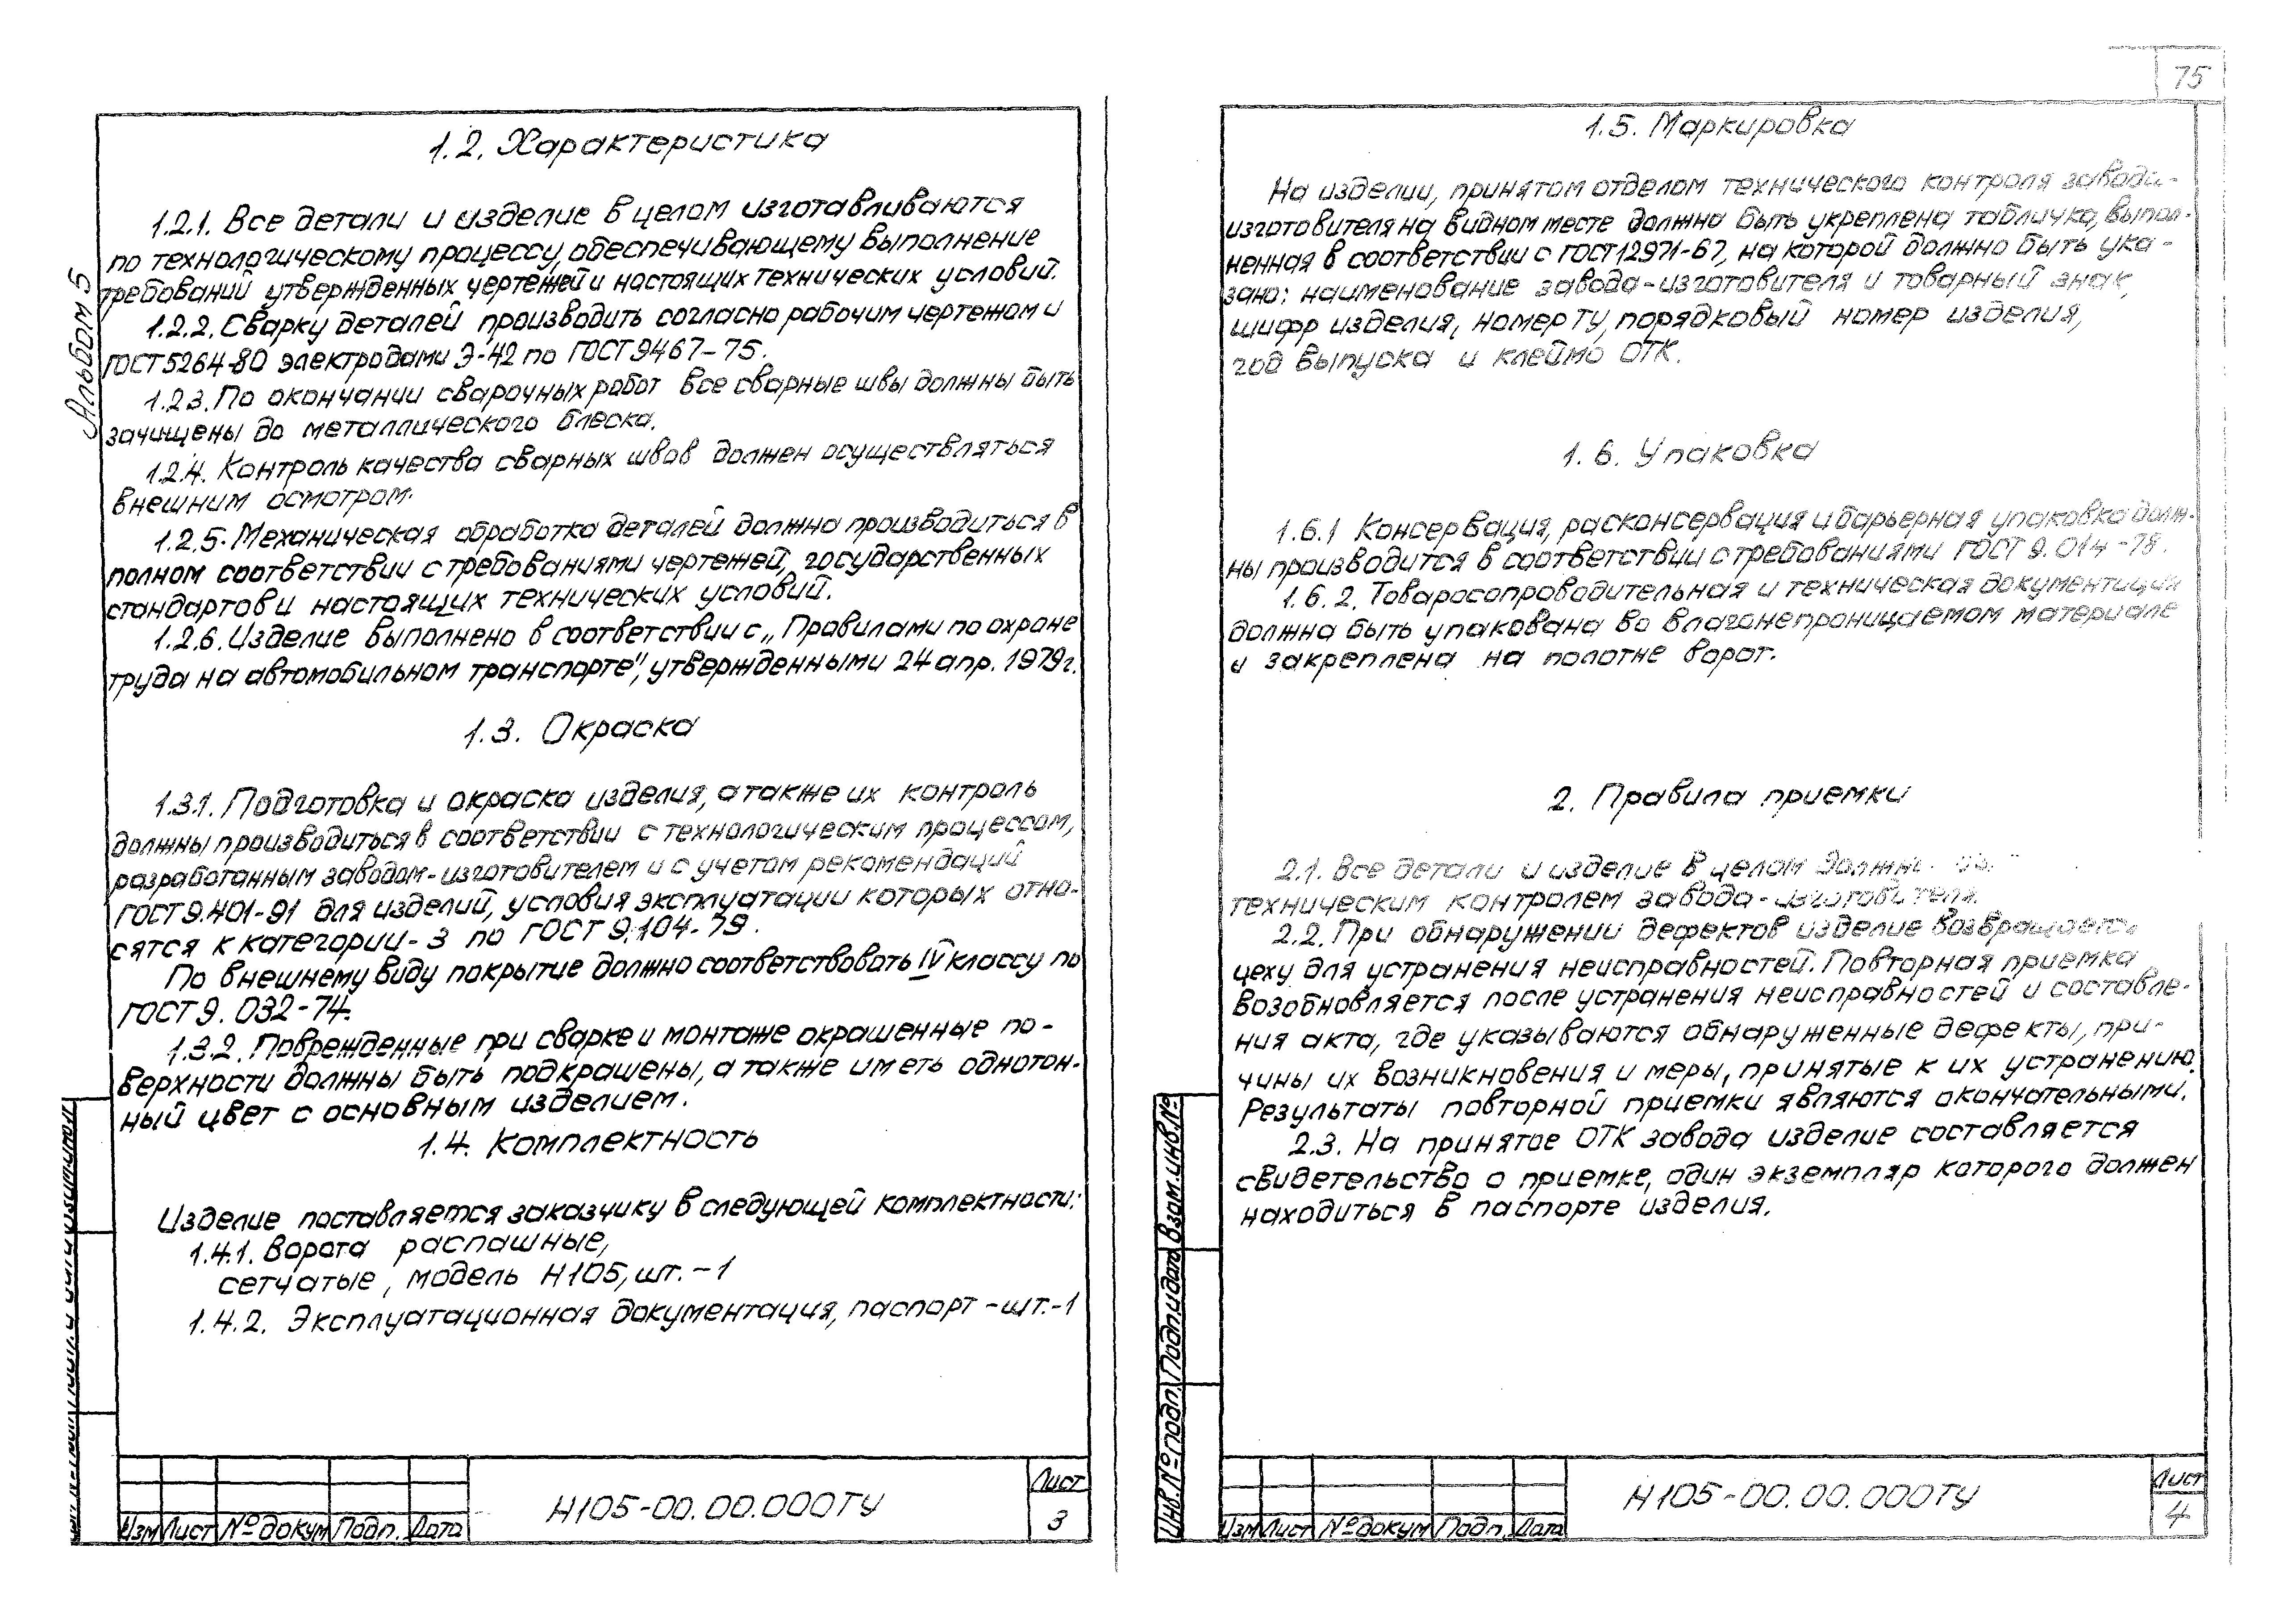 Альбом 5
1.2. Характеристика
1.2.1. Все детали и изделие в целом изготавливаются
по технологическому процессу, обеспечивающему выполнение
требований утвержденных чертежей и настоящих технических условий.
1.2.2. Сварку деталей производить согласно рабочим чертежам и
ГОСТ 5264-80 электродами Э-42 по ГОСТ 9467-75.
1.2.3. По окончании сварочных работ все сварные швы должны быть
зачищены до металлического блеска.
1.2.4. Контроль качества сварных швов должен осуществляться
внешним осмотром.
1.2.5. Механическая обработка деталей должна производиться в
полном соответствии с требованиями чертежей, государственных
стандартов и настоящих технических условий.
1.2.6. Изделие выполнено в соответствии с „Правилами по охране
труда на автомобильном транспорте", утвержденными 24 апр. 1979г.
1.3. Окраска
1.3.1. Подготовка и окраска изделия, а также их контроль
должны производиться в соответствии с технологическим процессом,
разработанным заводом-изготовителем и с учетом рекомендаций
ГОСТ 9.401-91 для изделий, условия эксплуатации которых отно-
сятся к категории - 3 по ГОСТ 9.104-79.
По внешнему виду покрытие должно соответствовать IV классу по
ГОСТ 9.032-74.
1.3.2. Поврежденные при сварке и монтаже окрашенные по-
верхности должны быть подкрашены, а также иметь однотон-
ный цвет с основным изделием.
1.4. Комплектность
Изделие поставляется заказчику в следующей комплектности:
1.4.1. Ворота распашные,
сетчатые, модель Н105, шт. - 1
1.4.2. Эксплуатационная документация, паспорт - шт.-1
Изм Лист № докум Подп. Дата
Н105-00.00.000ТУ
Лист
3
75
1.5. Маркировка
На изделии, принятом отделом технического контроля завода-
изготовителя на видном месте должна быть укреплена табличка, выпол-
ненная в соответствии с ГОСТ 12971-67, на которой должно быть ука-
зано: наименование завода-изготовителя и товарный знак,
шифр изделия, номер ТУ, порядковый номер изделия,
год выпуска и клеймо ОТК.
1.6. Упаковка
1.6.1 Консервация, расконсервация и барьерная упаковка долж-
ны производится в соответствии с требованиями ГОСТ 9.014-78.
1.6.2. Товаросопроводительная и техническая документация
должна быть упакована во влагонепроницаемом материале
и закреплена на полотне ворот.
2. Правила приемки
2.1. Все детали и изделие в целом
техническим контролем завода-изготовителя.
2.2. При обнаружении дефектов изделие возвращается
цеху для устранения неисправностей. Повторная приемка
возобновляется после устранения неисправностей и составле-
ния акта, где указываются обнаруженные дефекты, при-
чины их возникновения и меры, принятые к их устранению.
Результаты повторной приемки являются окончательными.
2.3. На принятое ОТК завода изделие составляется
свидетельство о приемке, один экземпляр которого должен
находиться в паспорте изделия.
Инв.№ подл. Подп.и дата Взам.инв.№
Изм Лист № докум Подп. Дата
Н105-00.00.000ТУ
Лист
4